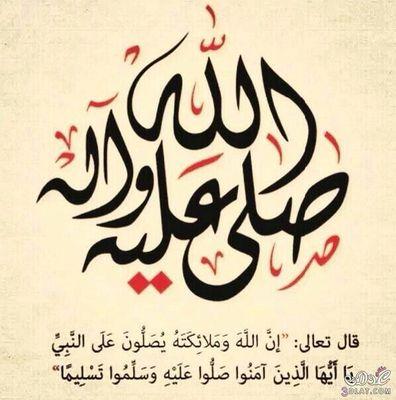 صلى الله عليه وآله
قال تعالى: "إِنَّ اللَّهَ وَمَلَائِكَتَهُ يُصَلُّونَ عَلَى النَّبِيِّ
يَا أَيُّهَا الَّذِينَ آمَنُوا صَلُّوا عَلَيْهِ وَسَلِّمُوا تَسْلِيمًا"
3DLAT.COM